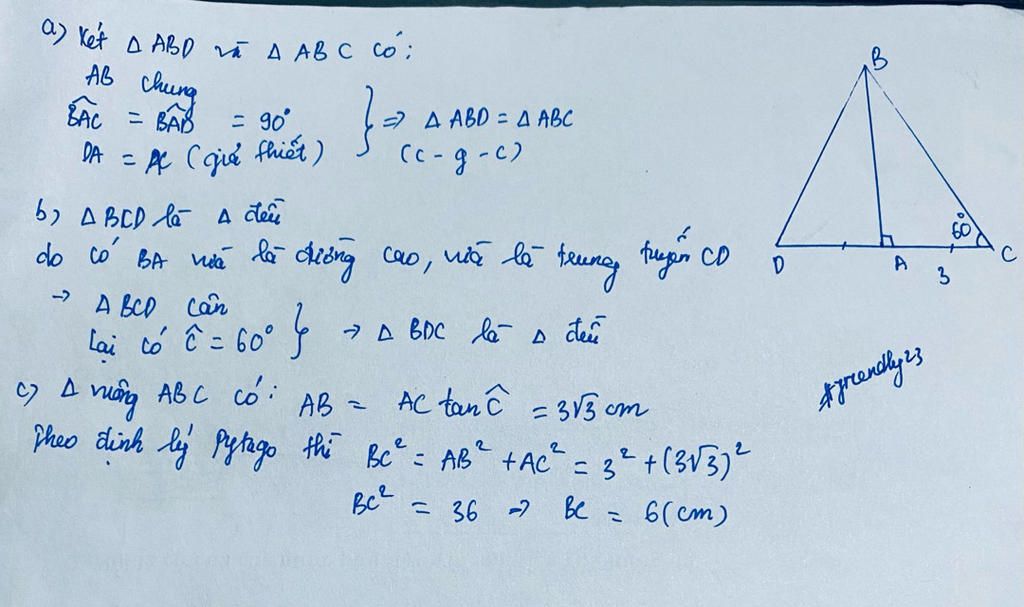 a) Xét Δ ABD và Δ ABC có:
AB chung
B̂AC = B̂AD = 90°
DA = AC (giả thiết)
} => Δ ABD = Δ ABC
(c - g - c)
b) Δ BCD là Δ đều
do có BA vừa là đường cao, vừa là trung tuyến CD
→ Δ BCD cân
Lại có Ĉ = 60° } → Δ BDC là Δ đều
c) Δ vuông ABC có: AB = AC tan Ĉ = 3√3 cm
Theo định lý Pytago thì BC² = AB² + AC² = 3² + (3√3)²
BC² = 36 → BC = 6 (cm)
B
60°
D
A
3
C